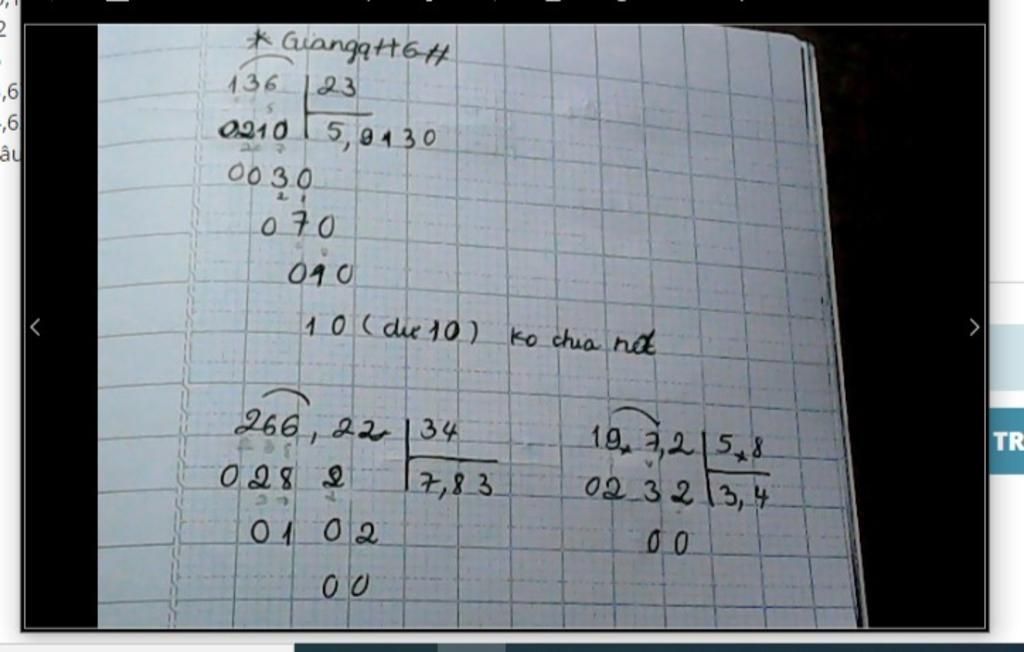 * Giangq++6#
136 | 23
0210 | 5,9130
0030
070
010
10 (dư 10) ko chia hết
266,22 | 34
028 2 | 7,83
01 02
00
19,7,2 | 5,8
02 32 | 3,4
00
TR